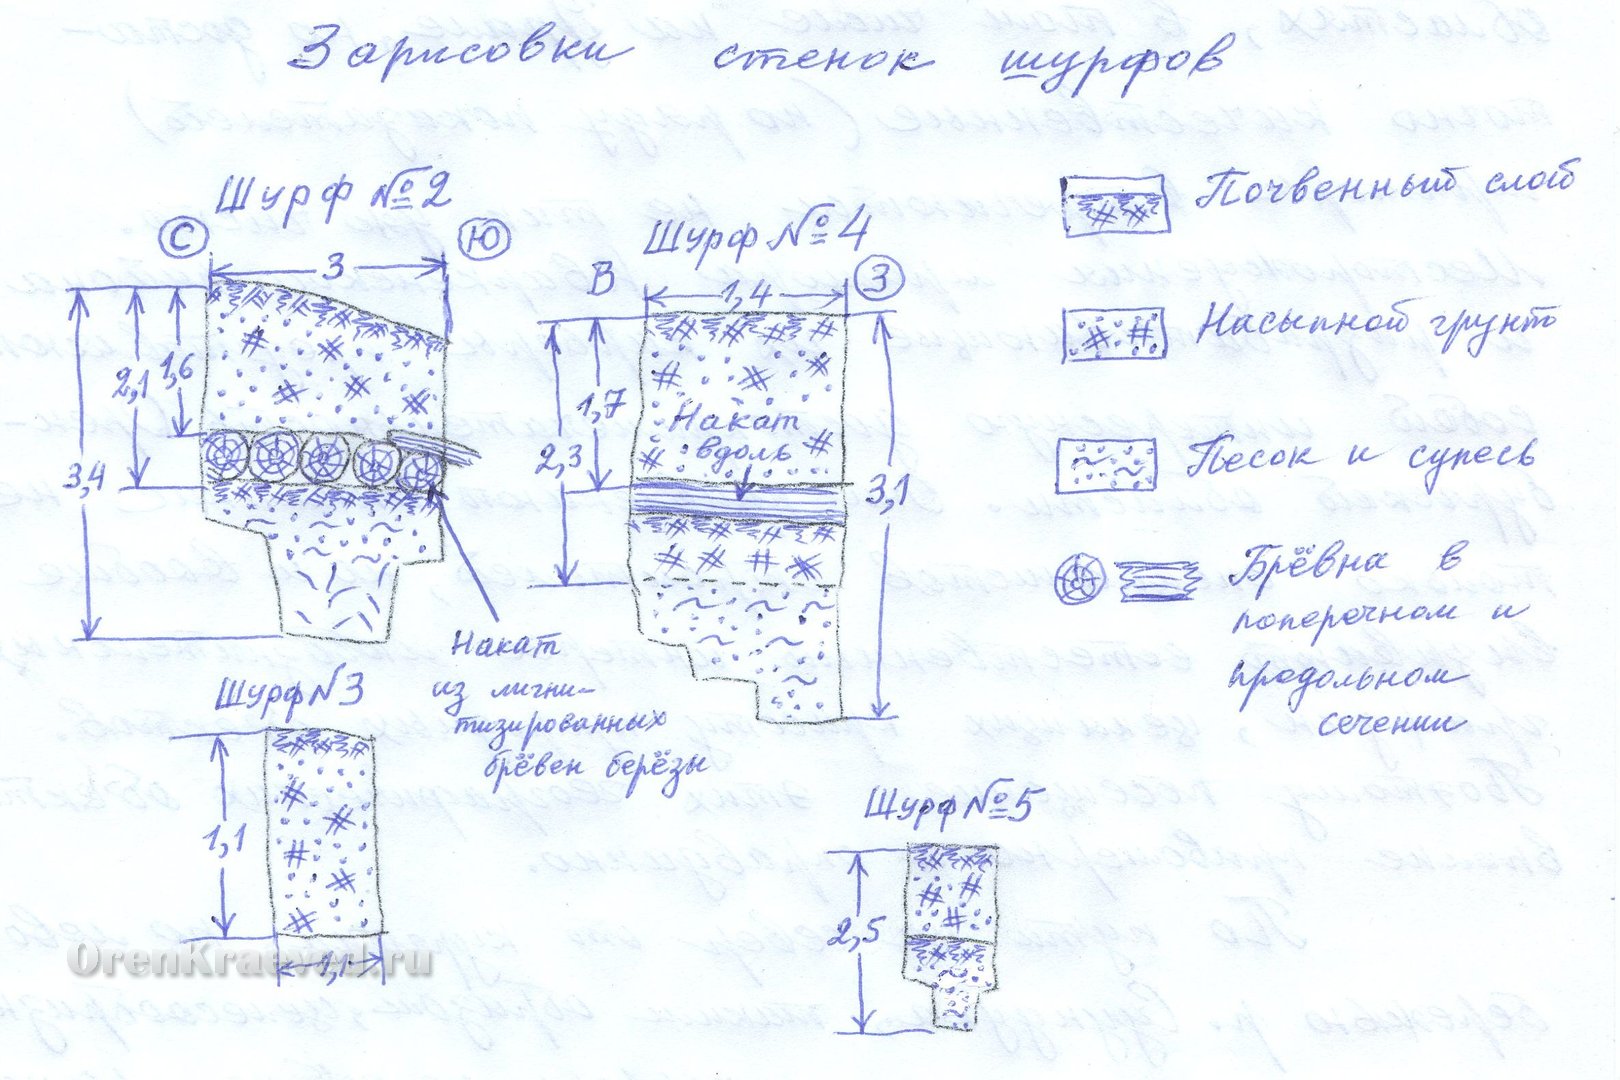 Зарисовки стенок шурфов
Шурф №2
С
Ю
3
1,6
2,1
3,4
Накат
из лигни-
тизированных
брёвен берёзы
Шурф №4
В
З
1,4
1,7
2,3
3,1
Накат
вдоль
Почвенный слой
Насыпной грунт
Песок и супесь
Брёвна в
поперечном и
продольном
сечении
Шурф N3
1,1
1,1
Шурф №5
2,5
OrenKraeved.ru